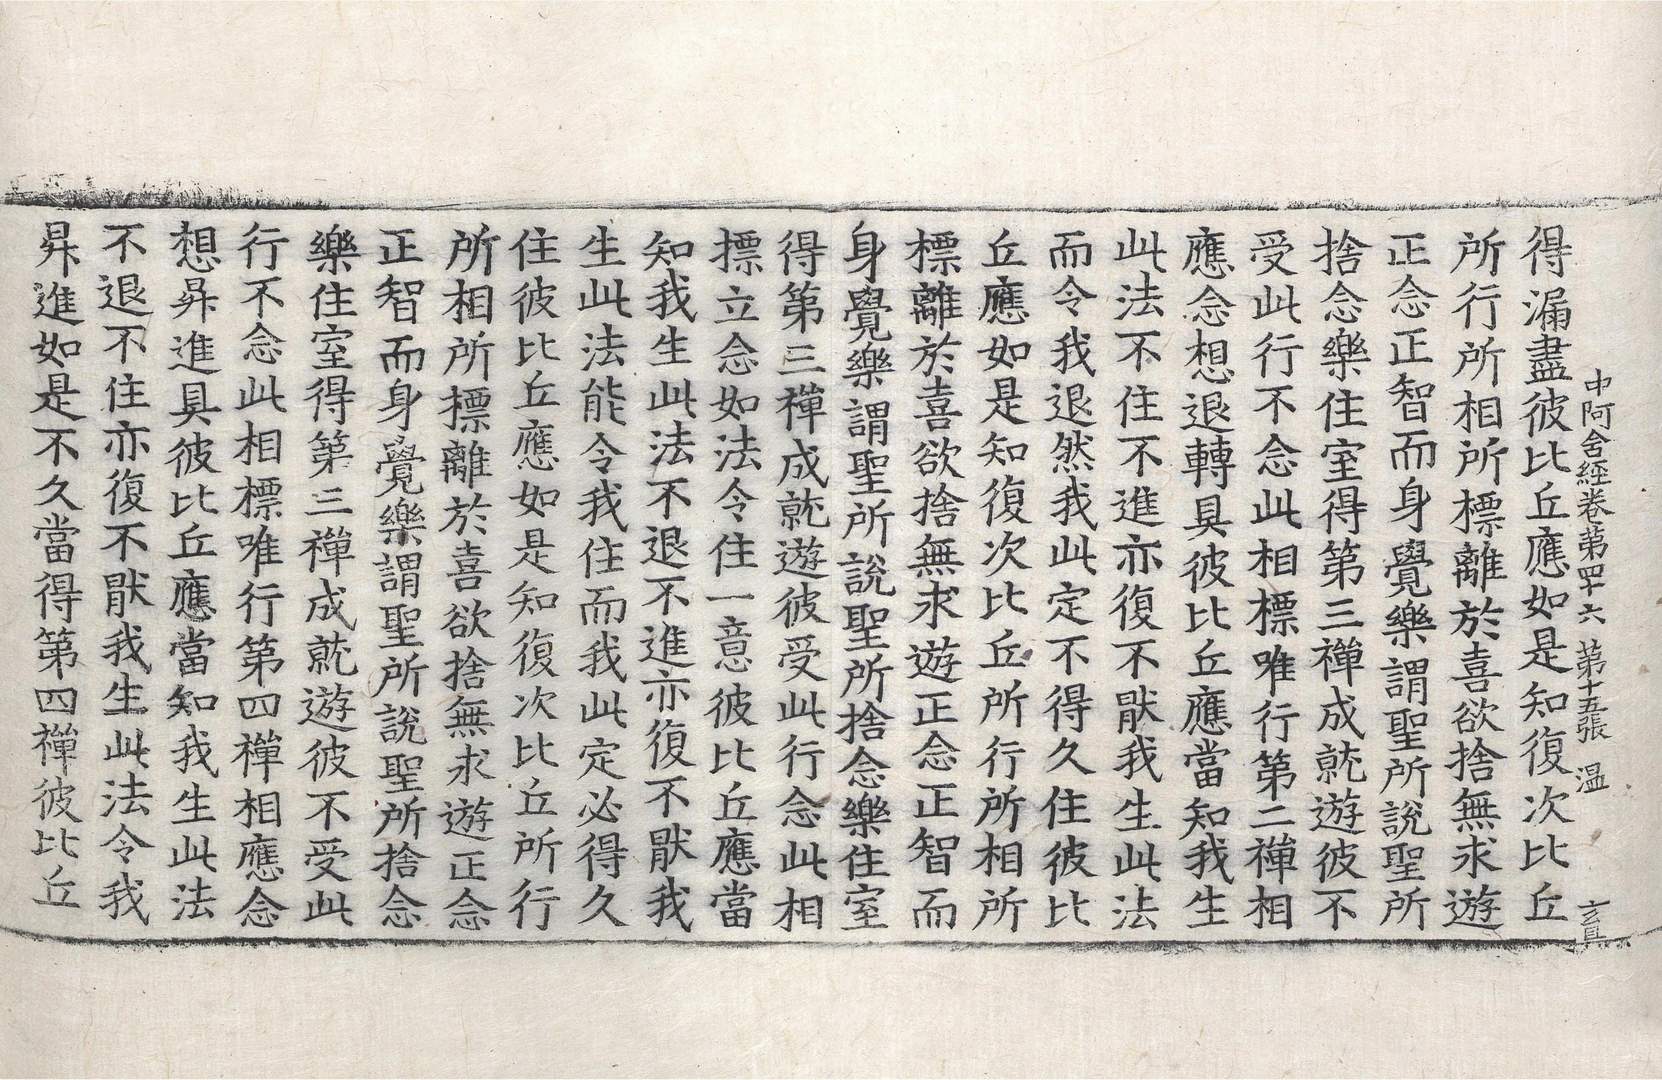 中阿含經卷第四十六 第十五張 温
得漏盡彼比丘應如是知復次比丘
所行所相所標離於喜欲捨無求遊
正念正智而身覺樂謂聖所說聖所
捨念樂住室得第三禪成就遊彼不
受此行不念此相標唯行第二禪相
應念想退轉具彼比丘應當知我生
此法不住不進亦復不猒我生此法
而令我退然我此定不得久住彼比
丘應如是知復次比丘所行所相所
標離於喜欲捨無求遊正念正智而
身覺樂謂聖所說聖所捨念樂住室
得第三禪成就遊彼受此行念此相
標立念如法令住一意彼比丘應當
知我生此法不退不進亦復不猒我
生此法能令我住而我此定必得久
住彼比丘應如是知復次比丘所行
所相所標離於喜欲捨無求遊正念
正智而身覺樂謂聖所說聖所捨念
樂住室得第三禪成就遊彼不受此
行不念此相標唯行第四禪相應念
想昇進具彼比丘應當知我生此法
不退不住亦復不猒我生此法令我
昇進如是不久當得第四禪彼比丘